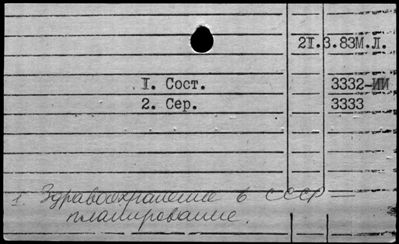 21.3.83М.Л.
I. Сост. 3332-ИИ
2. Сер. 3333
1. Здравоохранение в СССР —
планирование.